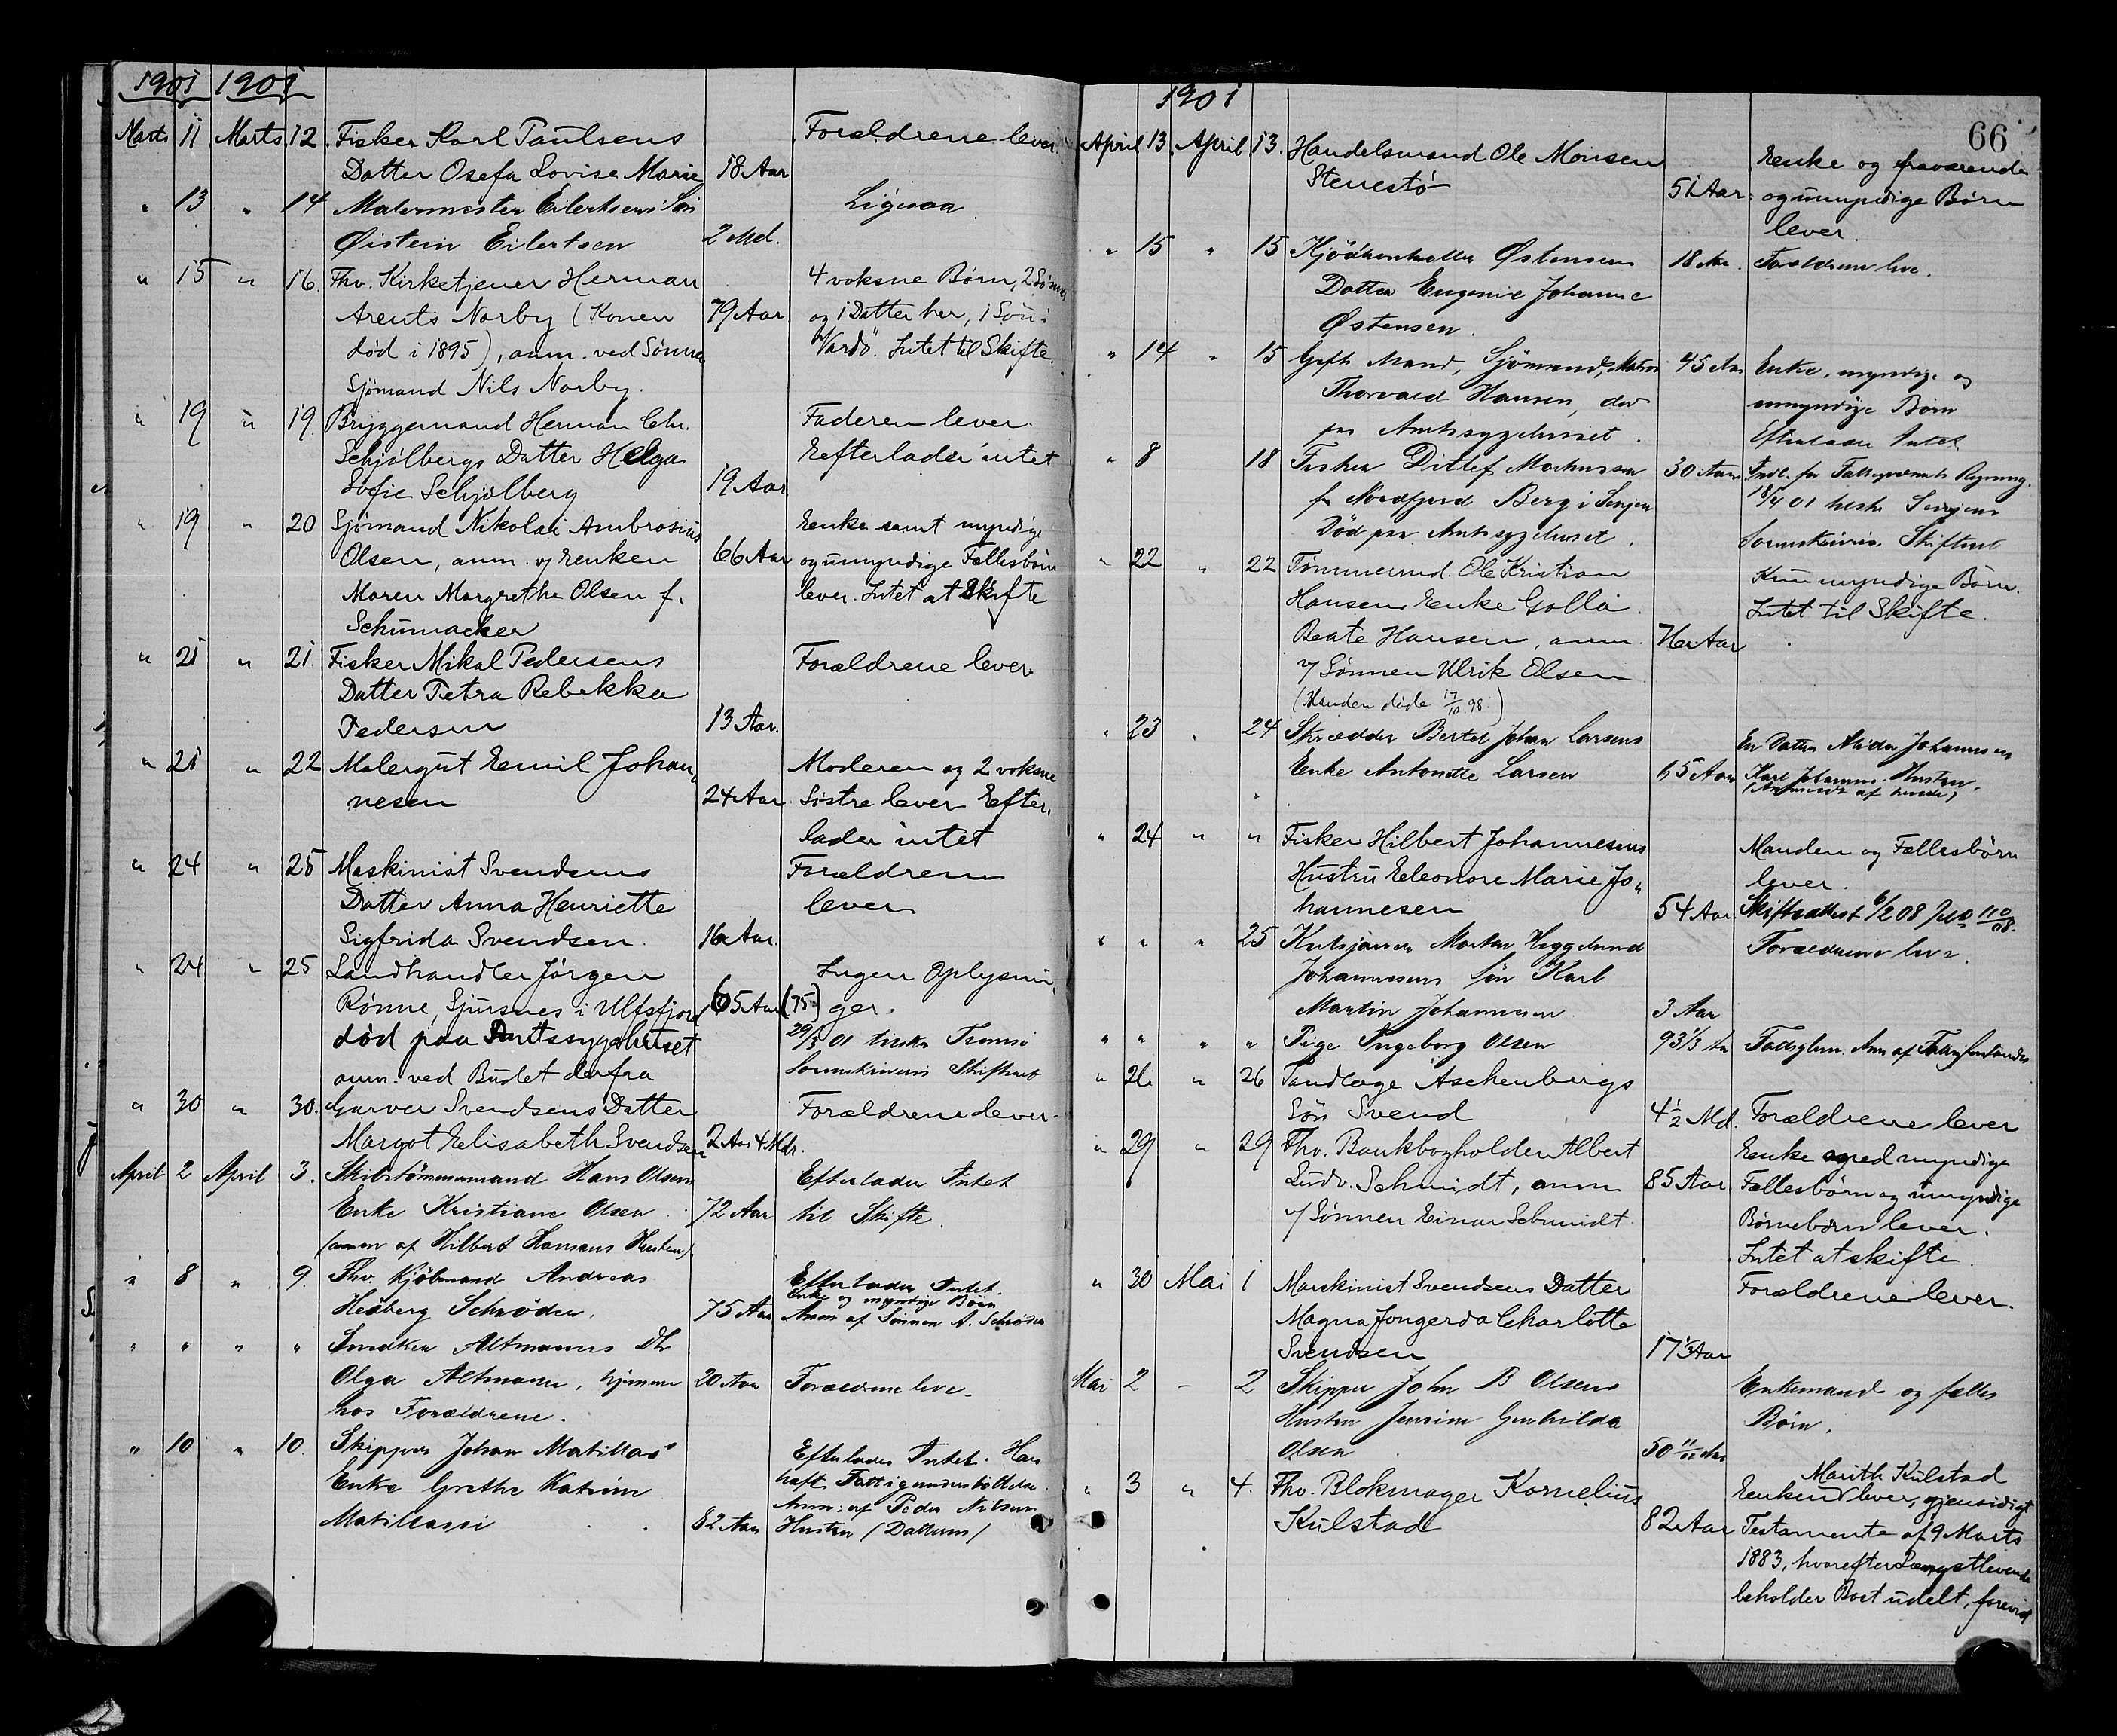 1901 1901
Marts 11 Marts 12. Fisker Karl Paulsens Forældrene lever.
Datter Osefa Lovise Marie 18 Aar
" 13 " 14 Malermester Eilertsens Søn Ligesaa
Øistein Eilertsen 2 Md.
" 15 " 16. Fhv. Kirketjener Herman 4 voksne Børn, 2 Sønner
Arents Norby (Konen 79 Aar og 1 Datter her, 1 Søn i
død i 1895), anm. ved Sønnen Vardö. Intet til Skifte.
Sjömand Nils Norby.
" 19 " 19. Bryggemand Herman Chr. Faderen lever.
Schjølbergs Datter Helga Efterlader intet
Sofie Schjølberg 19 Aar
" 19 " 20 Sjömand Nikolai Ambrosius Enke samt myndige
Olsen, anm. af Enken 66 Aar og umyndige Fællesbørn
Maren Margrethe Olsen f. lever. Intet at Skifte
Schumacker
" 21 " 21. Fisker Mikal Pedersens Forældrene lever
Datter Petra Rebekka
Pedersen 13 Aar.
" 21 " 22 Malergut Emil Johan- Moderen og 2 voksne
nesen 24 Aar. Söstre lever Efter-
lader intet
" 24 " 25 Maskinist Svendsens Forældrene
Datter Anna Henriette lever
Sigfrida Svendsen. 16 Aar.
" 24 " 25 Landhandler Jörgen Ingen Oplysnin-
Rönne, Sjursnes i Ulfsfjord 65 Aar (75) ger.
død paa Amtssygehuset 29/3 01 tilskr. Tromsö
anm. ved Budet derfra Sorenskriveri Skifteret
" 30 " 30. Garver Svendsens Datter Forældrene lever.
Margot Elisabeth Svendsen 2 Aar 4 Mdr.
April 2 April 3. Skibstömmermand Hans Olsens Efterlader Intet
Enke Kristiane Olsen 72 Aar til Skifte.
(anm af Hilbert Hansens Hustru).
" 8 " 9. Fhv. Kjöbmand Andreas Efterlader Intet.
Enke og myndige Börn
Hedberg Schrøder. 75 Aar Anm af Sönnen A. Schrøder
" " " " Snedker Altmanns Dtr
Olga Altmann, hjemme 20 Aar Forældrene leve.
hos Forældrene.
" 10 " 10. Skipper Johan Matillas' Efterlader Intet. Har
Enke Grethe Katrine havt Fattigunderstöttelse.
Anm: af Peder Nilsens
Matillassi 82 Aar Hustru (Datteren)
1901
66
April 13. April 13. Handelsmand Ole Monsen Enke og fraværende
Stenestö 51 Aar. og umyndige Børn
lever.
" 15 " 15 Kjödkontrollör Østensens 18 Aar. Forældrene leve.
Datter Eugenie Johanne
Østensen.
" 14 " 15 Gift Mand, Sjömand, Matros 45 Aar Enke, myndige og
Thorvald Hansen, död umyndige Børn
paa Amtssygehuset. Efterlader Intet
" 8 18 Fisker Ditlef Markussen 30 Aar Indl. for Fattigvæsenets Regning.
fr Nordfjord Berg i Senjen 18/4 01 tilskr Senjens
Död paa Amtssygehuset. Sorenskriveri Skifteret
" 22 " 22 Tømmermd. Ole Kristian Kun myndige Børn.
Hansens Enke Golla Intet til Skifte.
Beate Hansen, anm. 76 Aar
v/ Sønnen Ulrik Olsen
(Manden døde 17/10.98.)
" 23 " 24 Skrædder Bertel Johan Larsens En Datter Alida Johannesen
Enke Antonette Larsen 65 Aar Karl Johannes. Hustru.
(Anmeldt af hende)
" 24 " " Fisker Hilbert Johannesens Manden og Fællesbørn
Hustru Eleonore Marie Jo- lever.
hannesen 54 Aar. Skifteattest 6/2 08 110/08.
" " " 25 Morten Heggelund Forældrene leve.
Johannesens Søn Karl
Martin Johannesen 3 Aar
" " " " Pige Ingeborg Olsen 93 1/3 Aar
" 26 " 26 Tandlæge Aschenbergs
Sön Svend 4 1/2 Md. Forældrene lever
" 29 " 29 Fhv. Bankbogholder Albert Enke med myndige
Ludv. Schmidt, anm 85 Aar. Fællesbørn og umyndige
v/ Sønnen Einar Schmidt. Børnebørn lever.
Intet at skifte.
" 30 Mai 1 Marskinist Svendsens Datter Forældrene lever.
Magna Jongerda Charlotte
Svendsen 17 1/2 Aar
Mai 2 - 2 Skipper John B Olsens Enkemand og fælles
Hustru Jensine Gunhilda Børn.
Olsen 50 11/12 Aar
" 3 " 4. Fhv. Blokmager Kornelius Marith Kulstad
Enken lever, gjensidigt
Kulstad 82 Aar Testamente af 9 Marts
1883, hvorefter Længstlevende
beholder Boet udelt, forevist